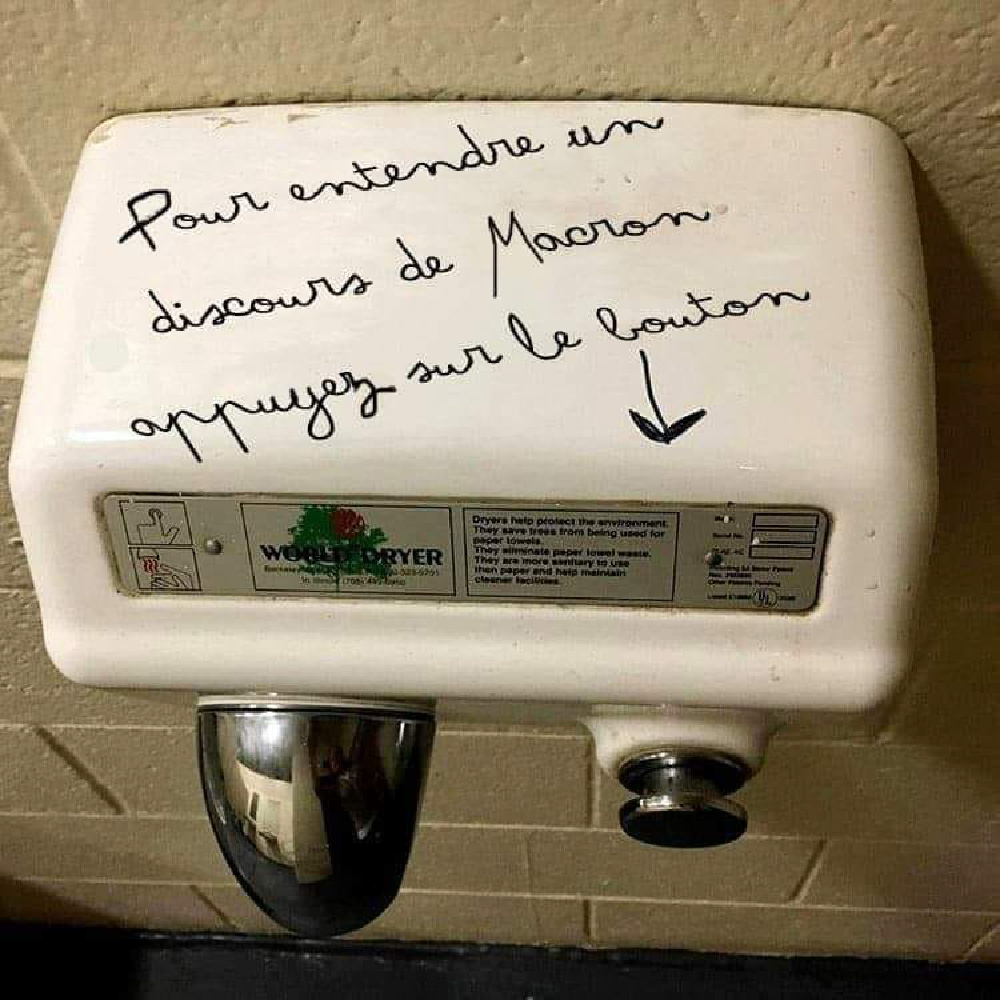 Pour entendre un
discours de Macron
appuyez sur le bouton
WORLD DRYER
Dryers help protect the environment.
They save trees from being used for
paper towels.
They eliminate paper towel waste.
They are more sanitary to use
then paper and help maintain
cleaner facilities.
Serial No.
Other Patents Pending
UL